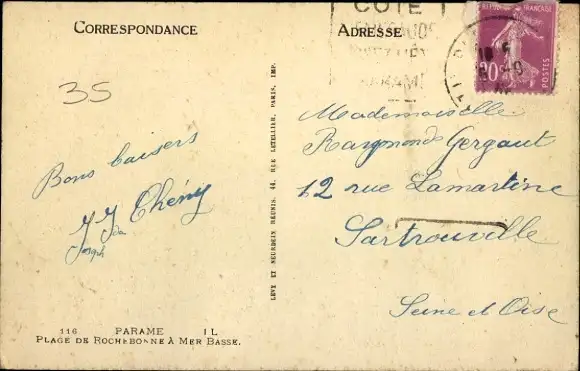 CORRESPONDANCE
35
Bons baisers
J J Thény
Ida
Joseph
116 PARAME IL
PLAGE DE ROCHEBONNE À MER BASSE.
LEVY ET NEURDEIN RÉUNIS, 44, RUE LETELLIER, PARIS, IMP.
ADRESSE
COTE
PARAMÉ
REPUBLIQUE FRANÇAISE
20c
POSTES
Mademoiselle
Raymonde Gergaut
12 rue Lamartine
Sartrouville
Seine et Oise